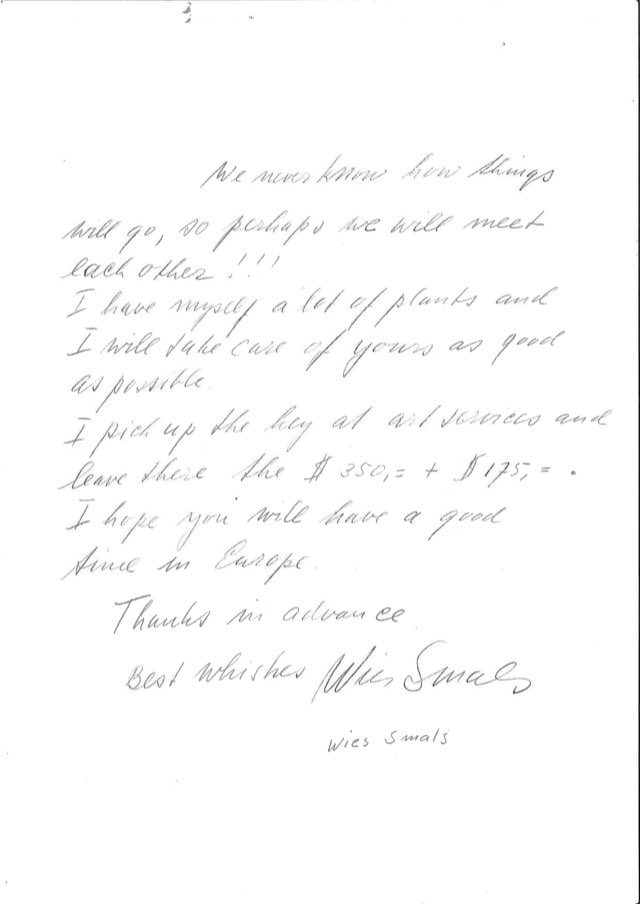 We never know how things
will go, so perhaps we will meet
each other!!!
I have myself a lot of plants and
I will take care of yours as good
as possible.
I pick up the key at art services and
leave there the $ 350,= + $ 175,= .
I hope you will have a good
time in Europe.
Thanks in advance
Best Whishes Wies Smals
Wies Smals